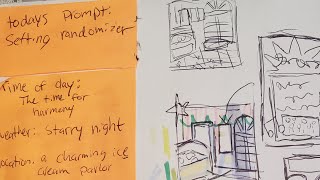 todays Prompt:
Setting randomizer
Time of day:
The time for
harmony
weather: Starry night
location: a charming ice
cream parlor